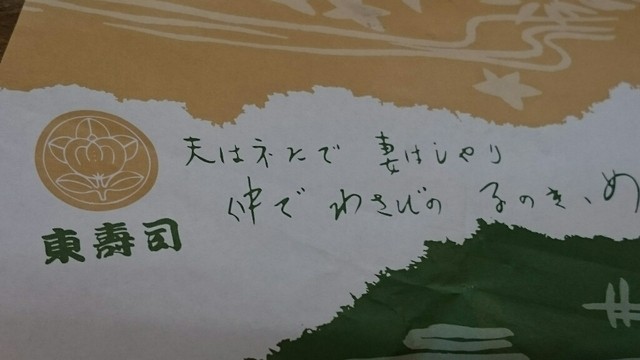 夫はネタで 妻はしゃり
仲で わさびの 子のきゝめ
東壽司